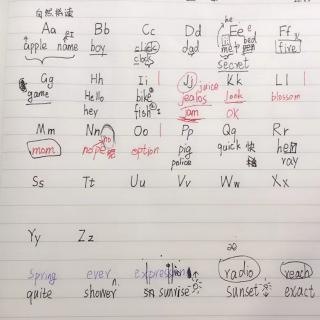 自然拼读
Aa Bb Cc Dd Ee e Ff
he
apple name boy clock dad met bed five
clock
secret
Gg Hh Ii Jj juice Kk Ll
game Hello bike jealos look blossom
hey fish jam OK
Mm Nn no Oo Pp Qq Rr
mom nope option pig quick 快
police ray
Ss Tt Uu Vv Ww Xx
Yy Zz
spring ever expression radio reach
quite shower n. sunrise sunset exact